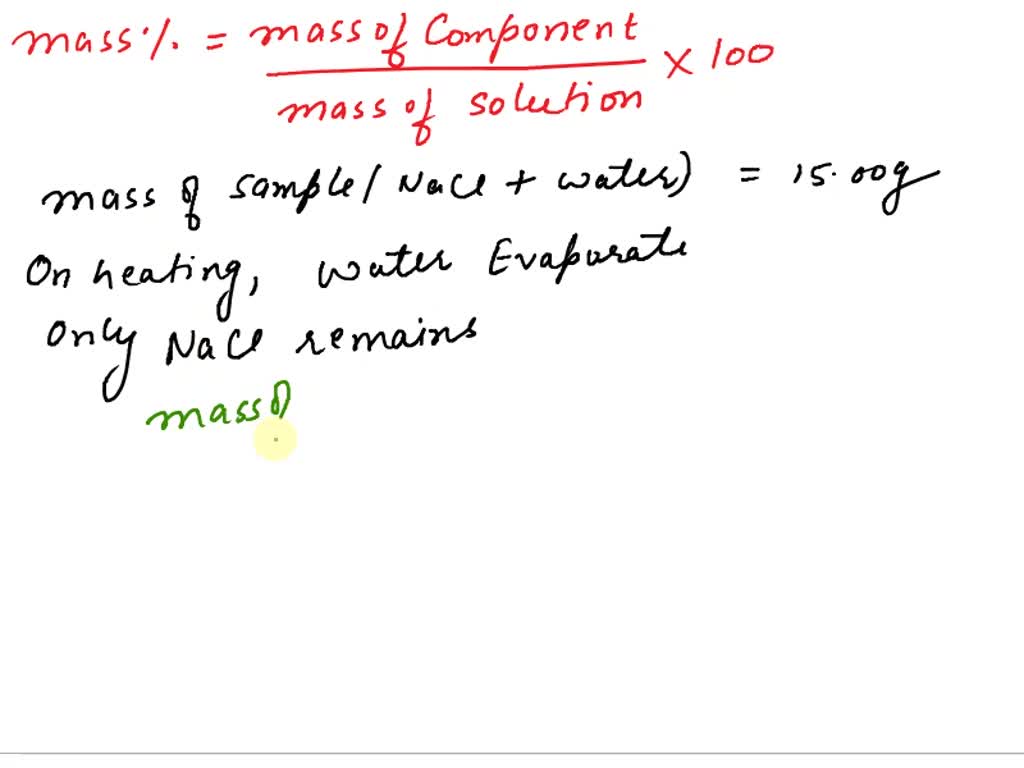 mass % = mass of Component / mass of solution × 100
mass of sample (NaCl + water) = 15.00g
On heating, water Evaporate
Only NaCl remains
mass of